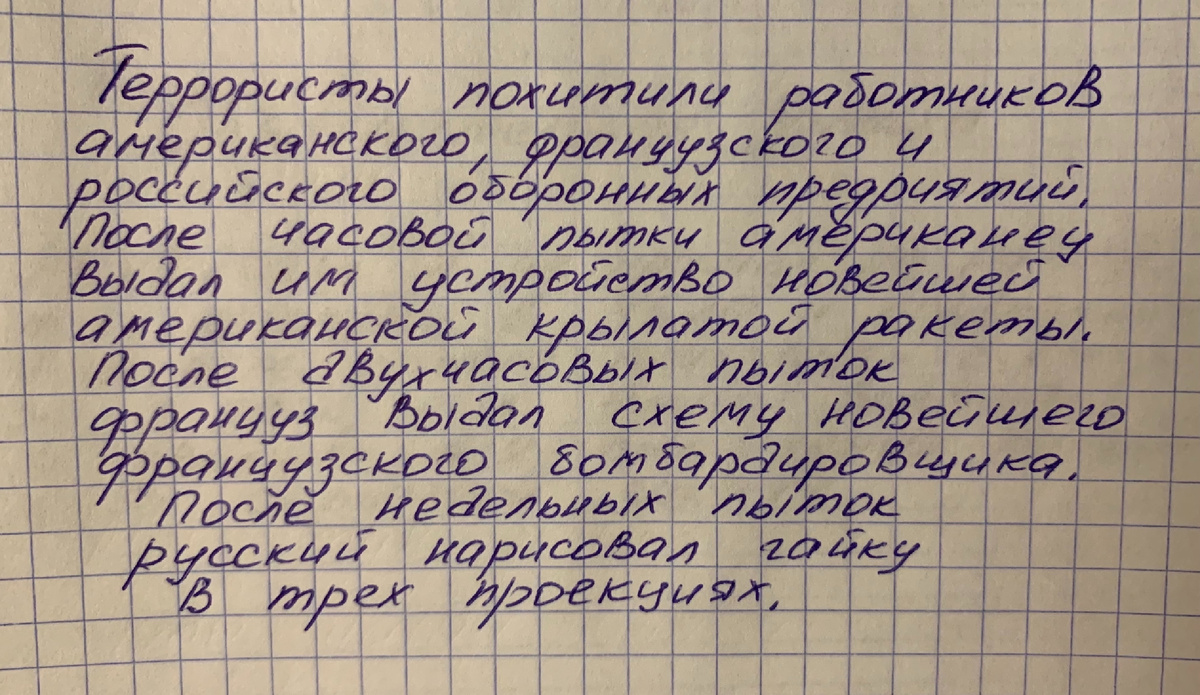 Террористы похитили работников
американского, французского и
российского оборонных предприятий.
После часовой пытки американец
выдал им устройство новейшей
американской крылатой ракеты.
После двухчасовых пыток
француз выдал схему новейшего
французского бомбардировщика.
После недельных пыток
русский нарисовал гайку
в трех проекциях.